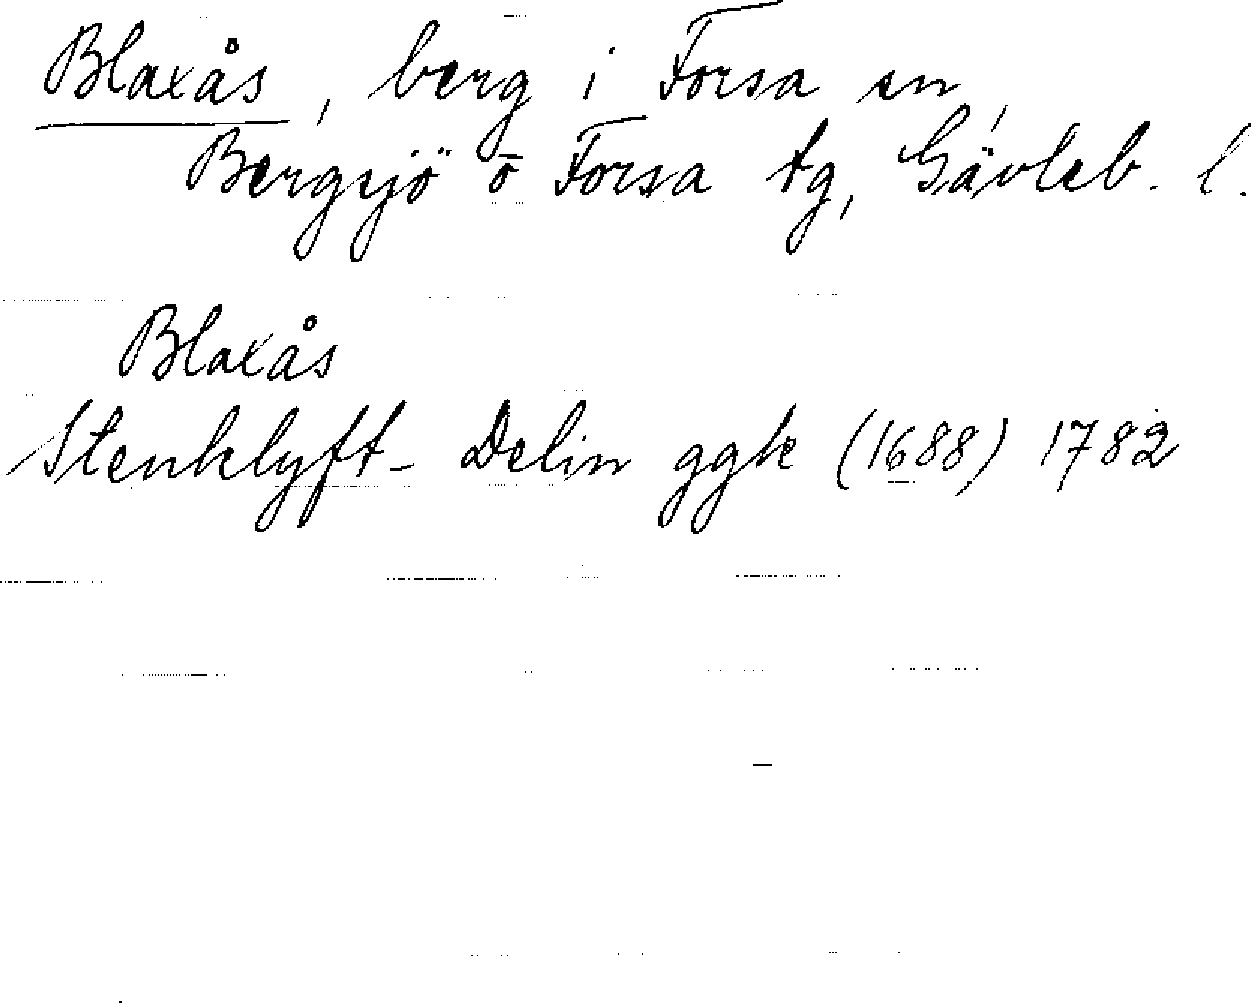 Blaxås, berg i Forsa sn,
Bergsjö o Forsa tg, Gävleb. l.
Blaxås
Stenklyft- Delin ggk (1688) 1782